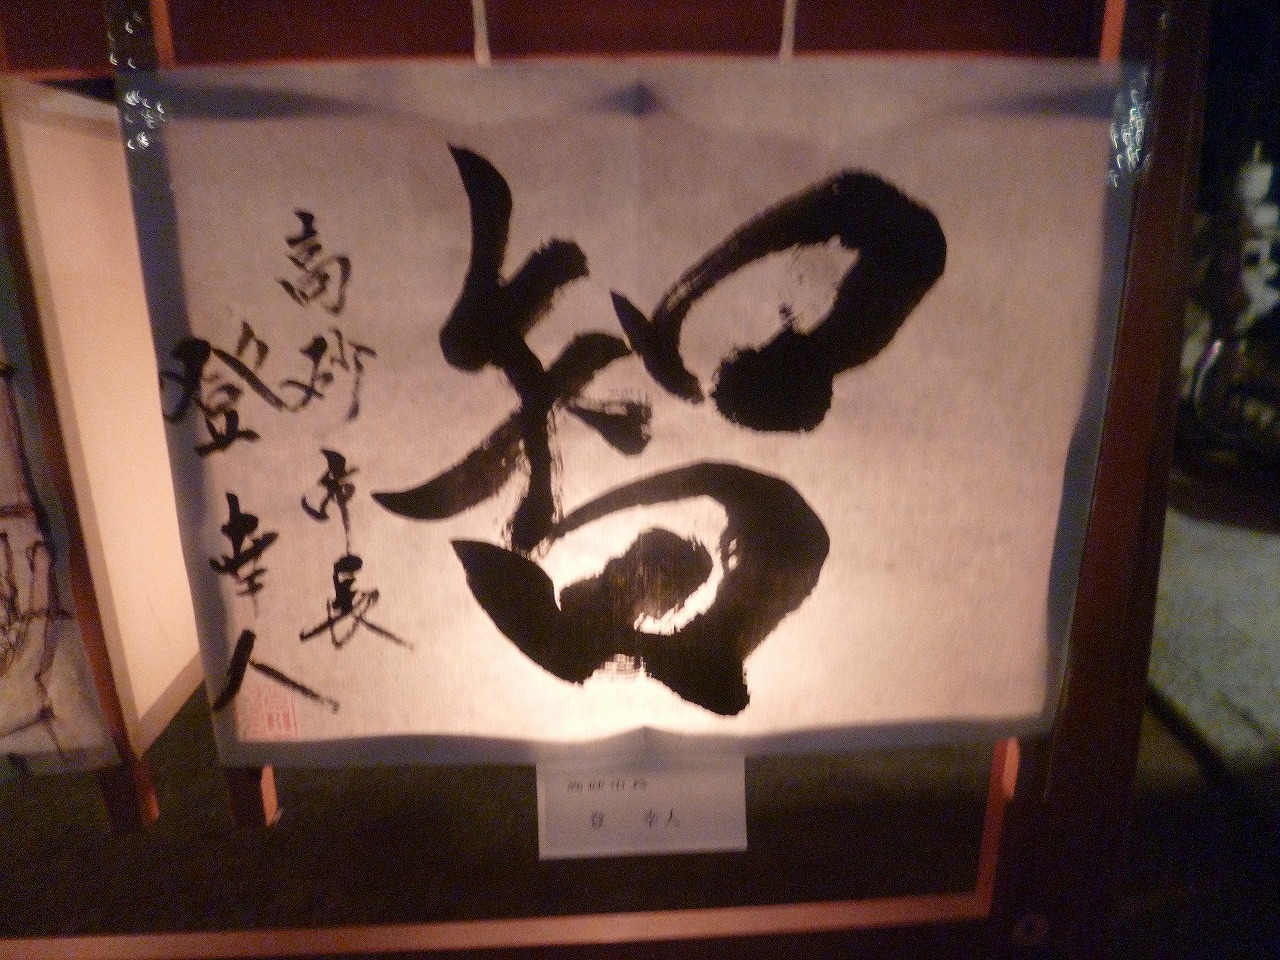 智
高砂市長
登幸人
高砂市長
登 幸人